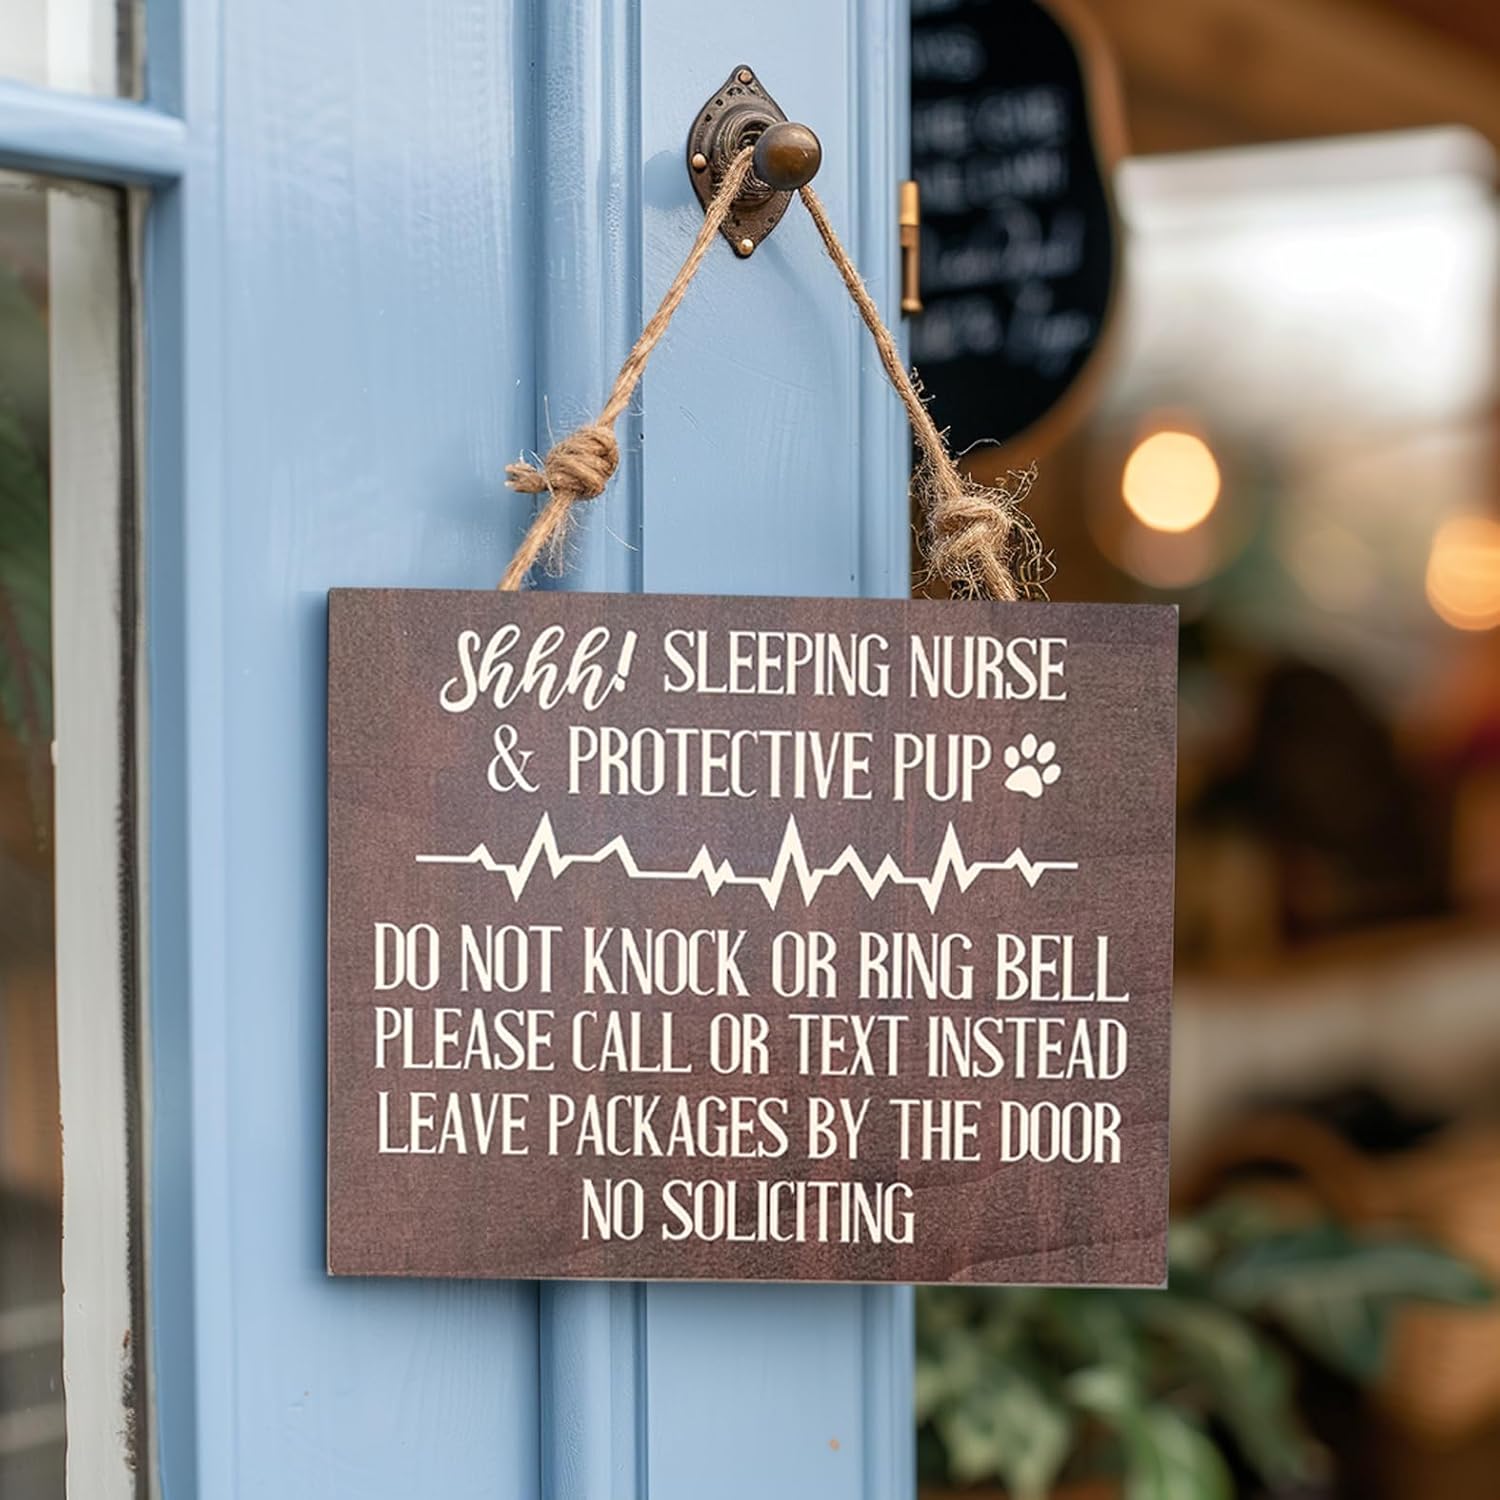 Shhh! SLEEPING NURSE
& PROTECTIVE PUP
DO NOT KNOCK OR RING BELL
PLEASE CALL OR TEXT INSTEAD
LEAVE PACKAGES BY THE DOOR
NO SOLICITING